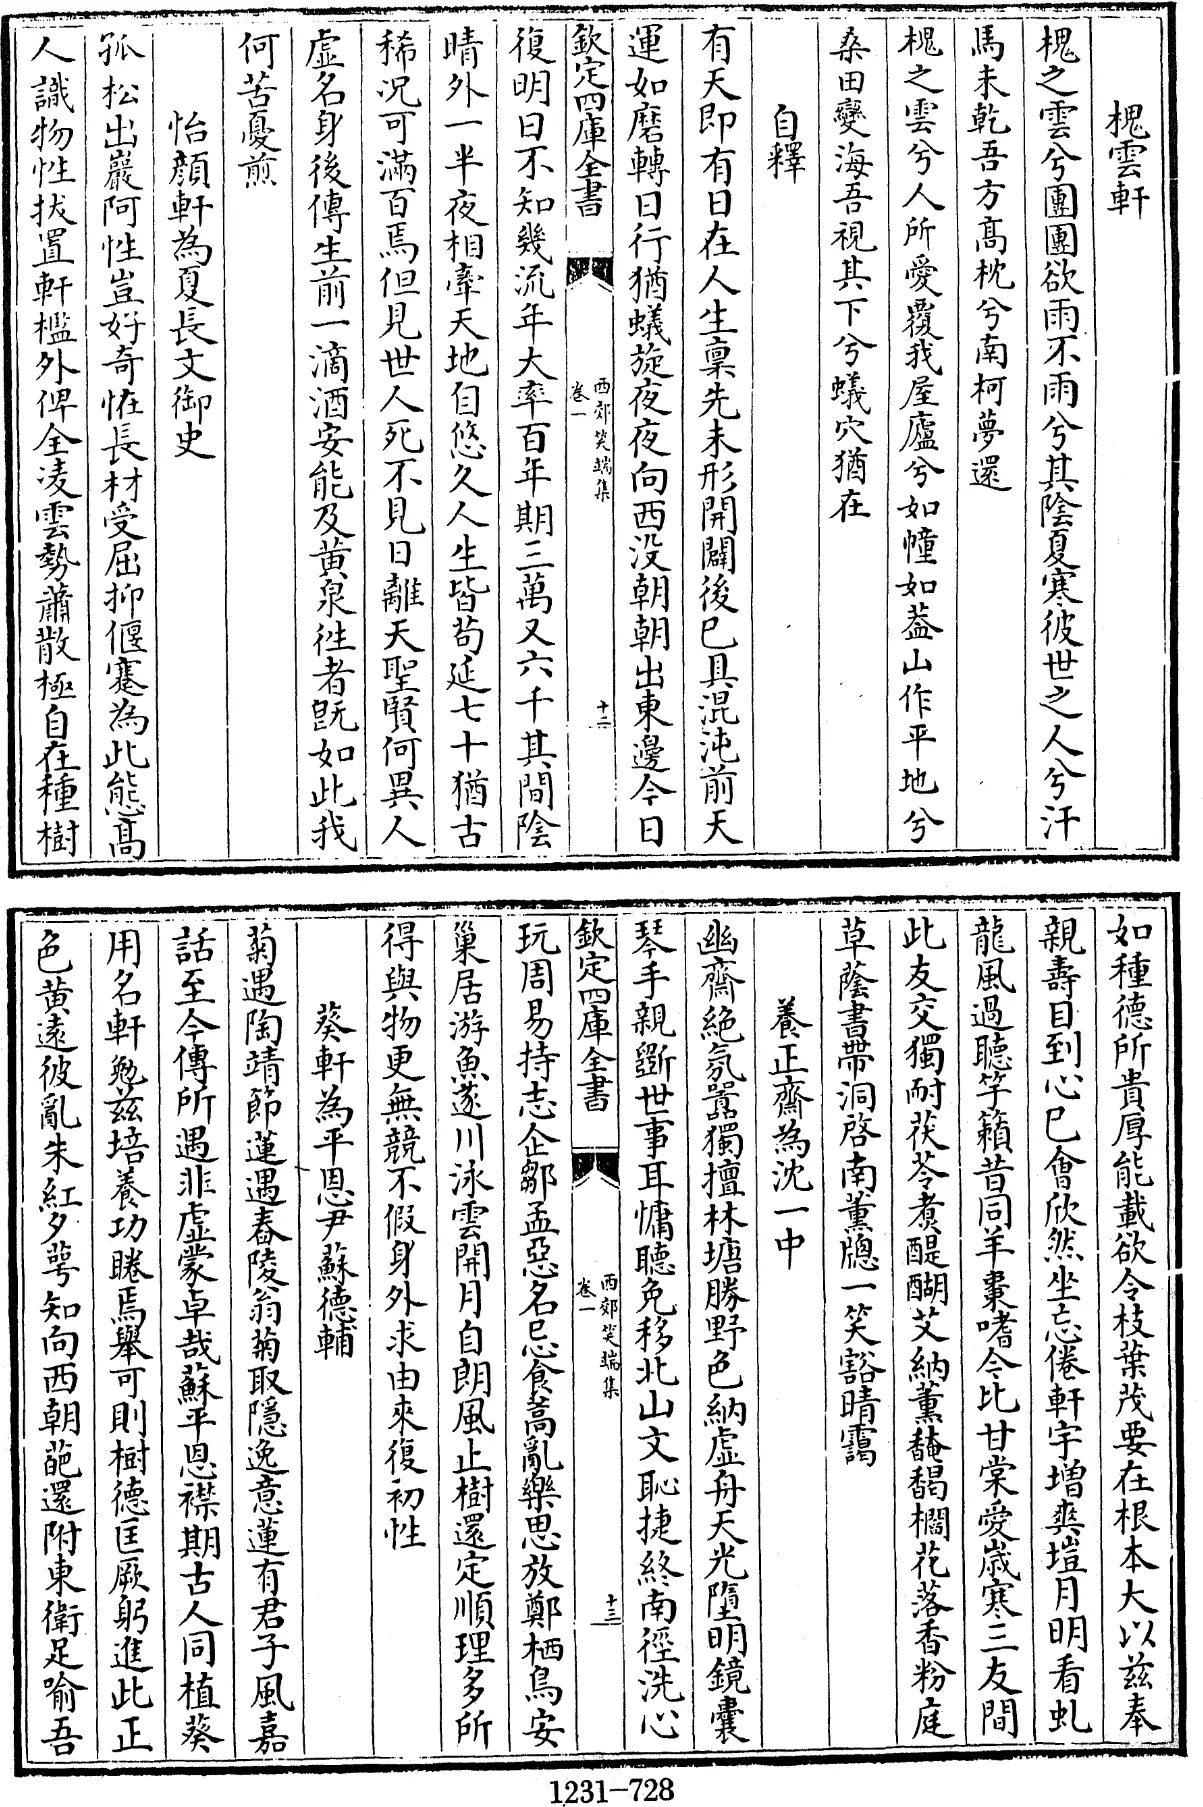 槐雲軒
槐之雲兮團團欲雨不雨兮其陰夏寒彼世之人兮汗
馬未乾吾方髙枕兮南柯夢還
槐之雲兮人所愛覆我屋廬兮如幢如葢山作平地兮
桑田變海吾視其下兮蟻穴猶在
自釋
有天即有日在人生禀先未形開闢後已具混沌前天
運如磨轉日行猶蟻旋夜夜向西没朝朝出東邊今日
欽定四庫全書
西郊笑端集
卷一
十二
復明日不知幾流年大率百年期三萬又六千其間陰
晴外一半夜相牽天地自悠久人生皆茍延七十猶古
稀况可滿百焉但見世人死不見日離天聖賢何異人
虚名身後傳生前一滴酒安能及黄泉徃者旣如此我
何苦憂煎
怡顔軒為夏長文御史
孤松出巖阿性豈好奇恠長材受屈抑偃蹇為此態髙
人識物性拔置軒檻外俾全凌雲勢蕭散極自在種樹
如種德所貴厚能載欲令枝葉茂要在根本大以兹奉
親壽目到心已會欣然坐忘倦軒宇增爽塏月明看虬
龍風過聽竽籟昔同羊棗嗜今比甘棠愛嵗寒三友間
此友交獨耐茯苓煑醍醐艾納薫馣馤櫩花落香粉庭
草蔭書帶洞啓南薫牕一笑豁晴靄
養正齋為沈一中
幽齋絶氛囂獨擅林塘勝野色納虚舟天光墮明鏡囊
琴手親斵世事耳慵聽免移北山文恥捷終南徑洗心
欽定四庫全書
西郊笑端集
卷一
十三
玩周易持志企鄒孟惡名忌食蒿亂樂思放鄭栖鳥安
巢居游魚遂川泳雲開月自朗風止樹還定順理多所
得與物更無競不假身外求由來復初性
葵軒為平恩尹蘇德輔
菊遇陶靖節蓮遇舂陵翁菊取隱逸意蓮有君子風嘉
話至今傳所遇非虚蒙卓哉蘇平恩襟期古人同植葵
用名軒勉兹培養功睠焉舉可則樹德匡厥躬進此正
色黄遠彼亂朱紅夕蕚知向西朝葩還附東衛足喻吾
1231-728